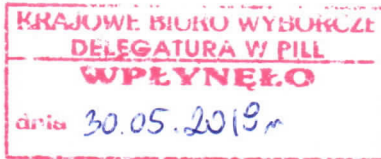 KRAJOWE BIURO WYBORCZE
DELEGATURA W PILE
WPŁYNĘŁO
dnia 30.05.2019 r